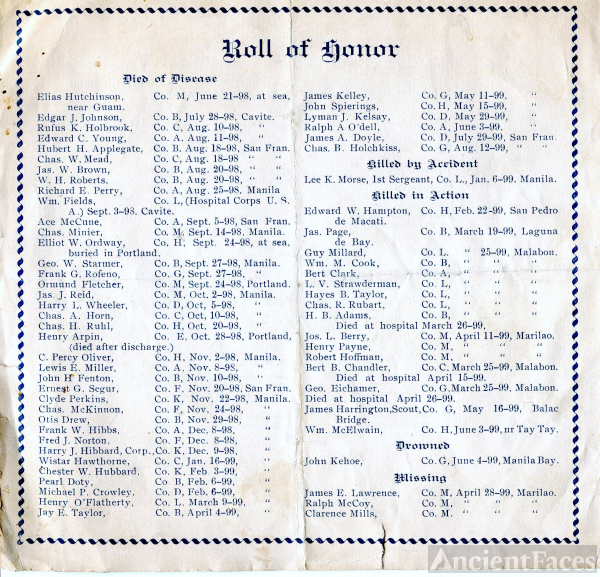 Roll of Honor
Died of Disease
Elias Hutchinson, Co. M, June 21-98, at sea,
near Guam.
Edgar J. Johnson, Co. B, July 28-98, Cavite.
Rufus K. Holbrook, Co. C, Aug. 10-98, "
Edward C. Young, Co. A, Aug. 11-98, "
Hubert H. Applegate, Co. B, Aug. 18-98, San Fran.
Chas. W. Mead, Co. C, Aug. 18-98 " "
Jas. W. Brown, Co. B, Aug. 20-98, " "
W. H. Roberts. Co. B, Aug. 20-98, " "
Richard E. Perry, Co. A, Aug. 25-98. Manila
Wm. Fields, Co. L, (Hospital Corps U. S.
A.) Sept. 3-98. Cavite.
Ace McCune, Co. A, Sept. 5-98, San Fran.
Chas. Minier, Co. M, Sept. 14-98, Manila.
Elliot W. Ordway, Co. H, Sept. 24-98, at sea,
buried in Portland.
Geo. W. Starmer, Co. B, Sept. 27-98, Manila
Frank G. Rofeno, Co. G, Sept. 27-98, "
Ormund Fletcher, Co. M, Sept. 24-98, Portland
Jas. J. Reid, Co. M, Oct. 2-98, Manila.
Harry L. Wheeler, Co. D, Oct, 5-98, "
Chas. A. Horn, Co. C, Oct, 10-98, "
Chas. H. Ruhl, Co. H, Oct, 20-98, "
Henry Arpin, Co. E, Oct. 28-98, Portland,
(died after discharge.)
C. Percy Oliver, Co. H, Nov. 2-98, Manila.
Lewis E. Miller, Co. A, Nov. 8-98, "
John H Fenton, Co. B, Nov. 10-98, "
Ernest G. Segur, Co. F, Nov. 20-98, San Fran.
Clyde Perkins, Co. K, Nov. 22-98, Manila.
Chas. McKinnon, Co. F, Nov. 24-98, "
Otis Drew, Co. B, Nov. 29-98, "
Frank W. Hibbs, Co. A, Dec. 8-98, "
Fred J. Norton, Co. F, Dec. 8-98, "
Harry J. Hibbard, Corp., Co. K, Dec. 9-98, "
Wistar Hawthorne, Co. C, Jan. 16-99, "
Chester W. Hubbard. Co. K, Feb. 3-99, "
Pearl Doty, Co. B, Feb. 6-99, "
Michael P. Crowley. Co. D, Feb. 6-99, "
Henry O'Flatherty. Co. L. March 9-99, "
Jay E. Taylor, Co. B, April 4-99, "
James Kelley, Co. G, May 11-99, "
John Spierings, Co. H, May 15-99, "
Lyman J. Kelsay, Co. D, May 29-99, "
Ralph A. O'dell, Co. A, June 3-99, "
James A. Doyle, Co. D, July 29-99, San Fran.
Chas. B. Holchkiss, Co. G, Aug. 12-99, " "
Killed by Accident
Lee K. Morse, 1st Sergeant, Co. L, Jan. 6-99. Manila.
Killed in Action
Edward W. Hampton, Co. H, Feb. 22-99, San Pedro
de Macati.
Jas. Page, Co. B, March 19-99, Laguna
de Bay.
Guy Millard, Co. L. " 25-99, Malabon.
Wm. M. Cook, Co. B, " " "
Bert Clark, Co. A, " " "
L. V. Strawderman, Co. L, " " "
Hayes B. Taylor, Co. L, " " "
Chas. R. Rubart, Co. L, " " "
H. B. Adams, Co. B, " " "
Died at hospital March 26-99,
Jos. L. Berry, Co. M, April 11-99, Marilao.
Henry Payne, Co. M, " " "
Robert Hoffman, Co. M, " " "
Bert B. Chandler, Co. C, March 25-99, Malabon.
Died at hospital April 15-99.
Geo. Eichamer, Co. G, March 25-99, Malabon.
Died at hospital April 26-99.
James Harrington, Scout, Co. G, May 16-99, Balac
Bridge.
Wm. McElwain, Co. H, June 3-99, nr Tay Tay.
Drowned
John Kehoe, Co. G, June 4-99, Manila Bay.
Missing
James E. Lawrence, Co. M, April 28-99, Marilao.
Ralph McCoy, Co. M, " " "
Clarence Mills, Co. M. " " "
AncientFaces